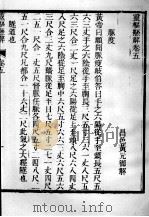 靈樞懸解卷五
昌邑黃元御解
脈度
黃帝曰願聞脈度岐伯答曰手之六陽從手至頭長五尺五
六三丈手之六陰從手至胸中三尺五寸三六一丈八尺五
六三尺合二丈一尺足之六陽從足上至頭八尺六八四丈
八尺足之六陰從足至胸中六尺五寸六六三丈六尺五六
三尺合三丈九尺蹻脈從足至目七尺五寸二七一丈四尺
二五一尺合一丈五尺督脈任脈各四尺五寸二四八尺二
五一尺合九尺凡都合一十六丈二尺此氣之大經隧也
隧道也